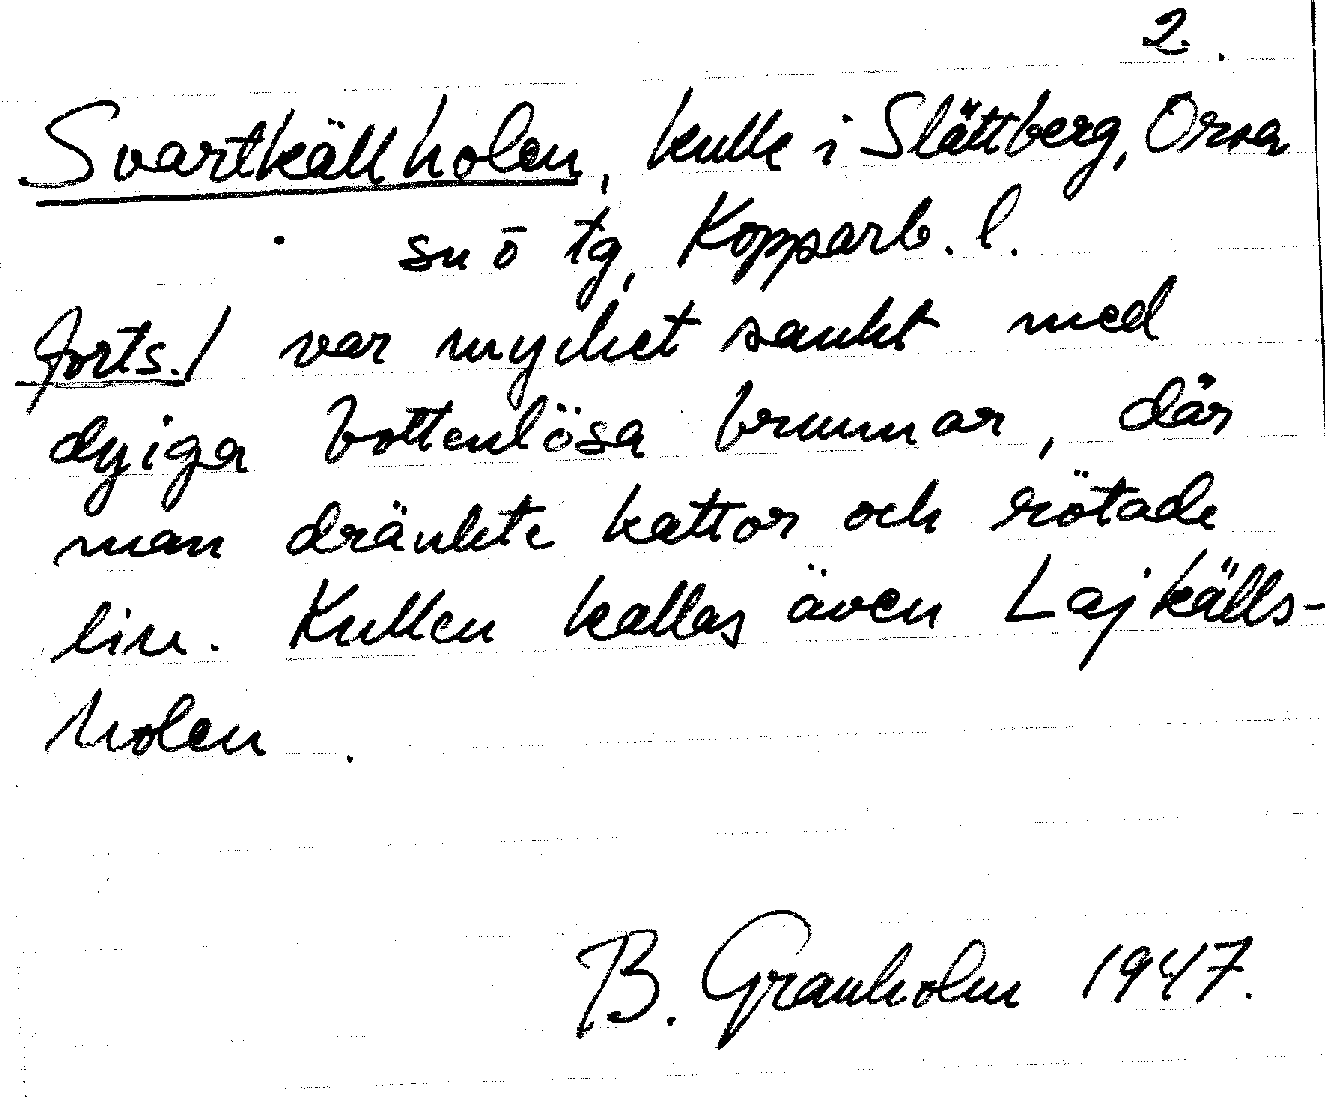 2.
Svartkällholen, kulle i Slättberg, Orsa
sn ö tg, Kopparb. l.
forts./ var mycket sankt med
dyiga bottenlösa brunnar, där
man dränkte kattor och rötade
lin. Kullen kallas även Lajkälls-
holen.
B. Granholm 1947.